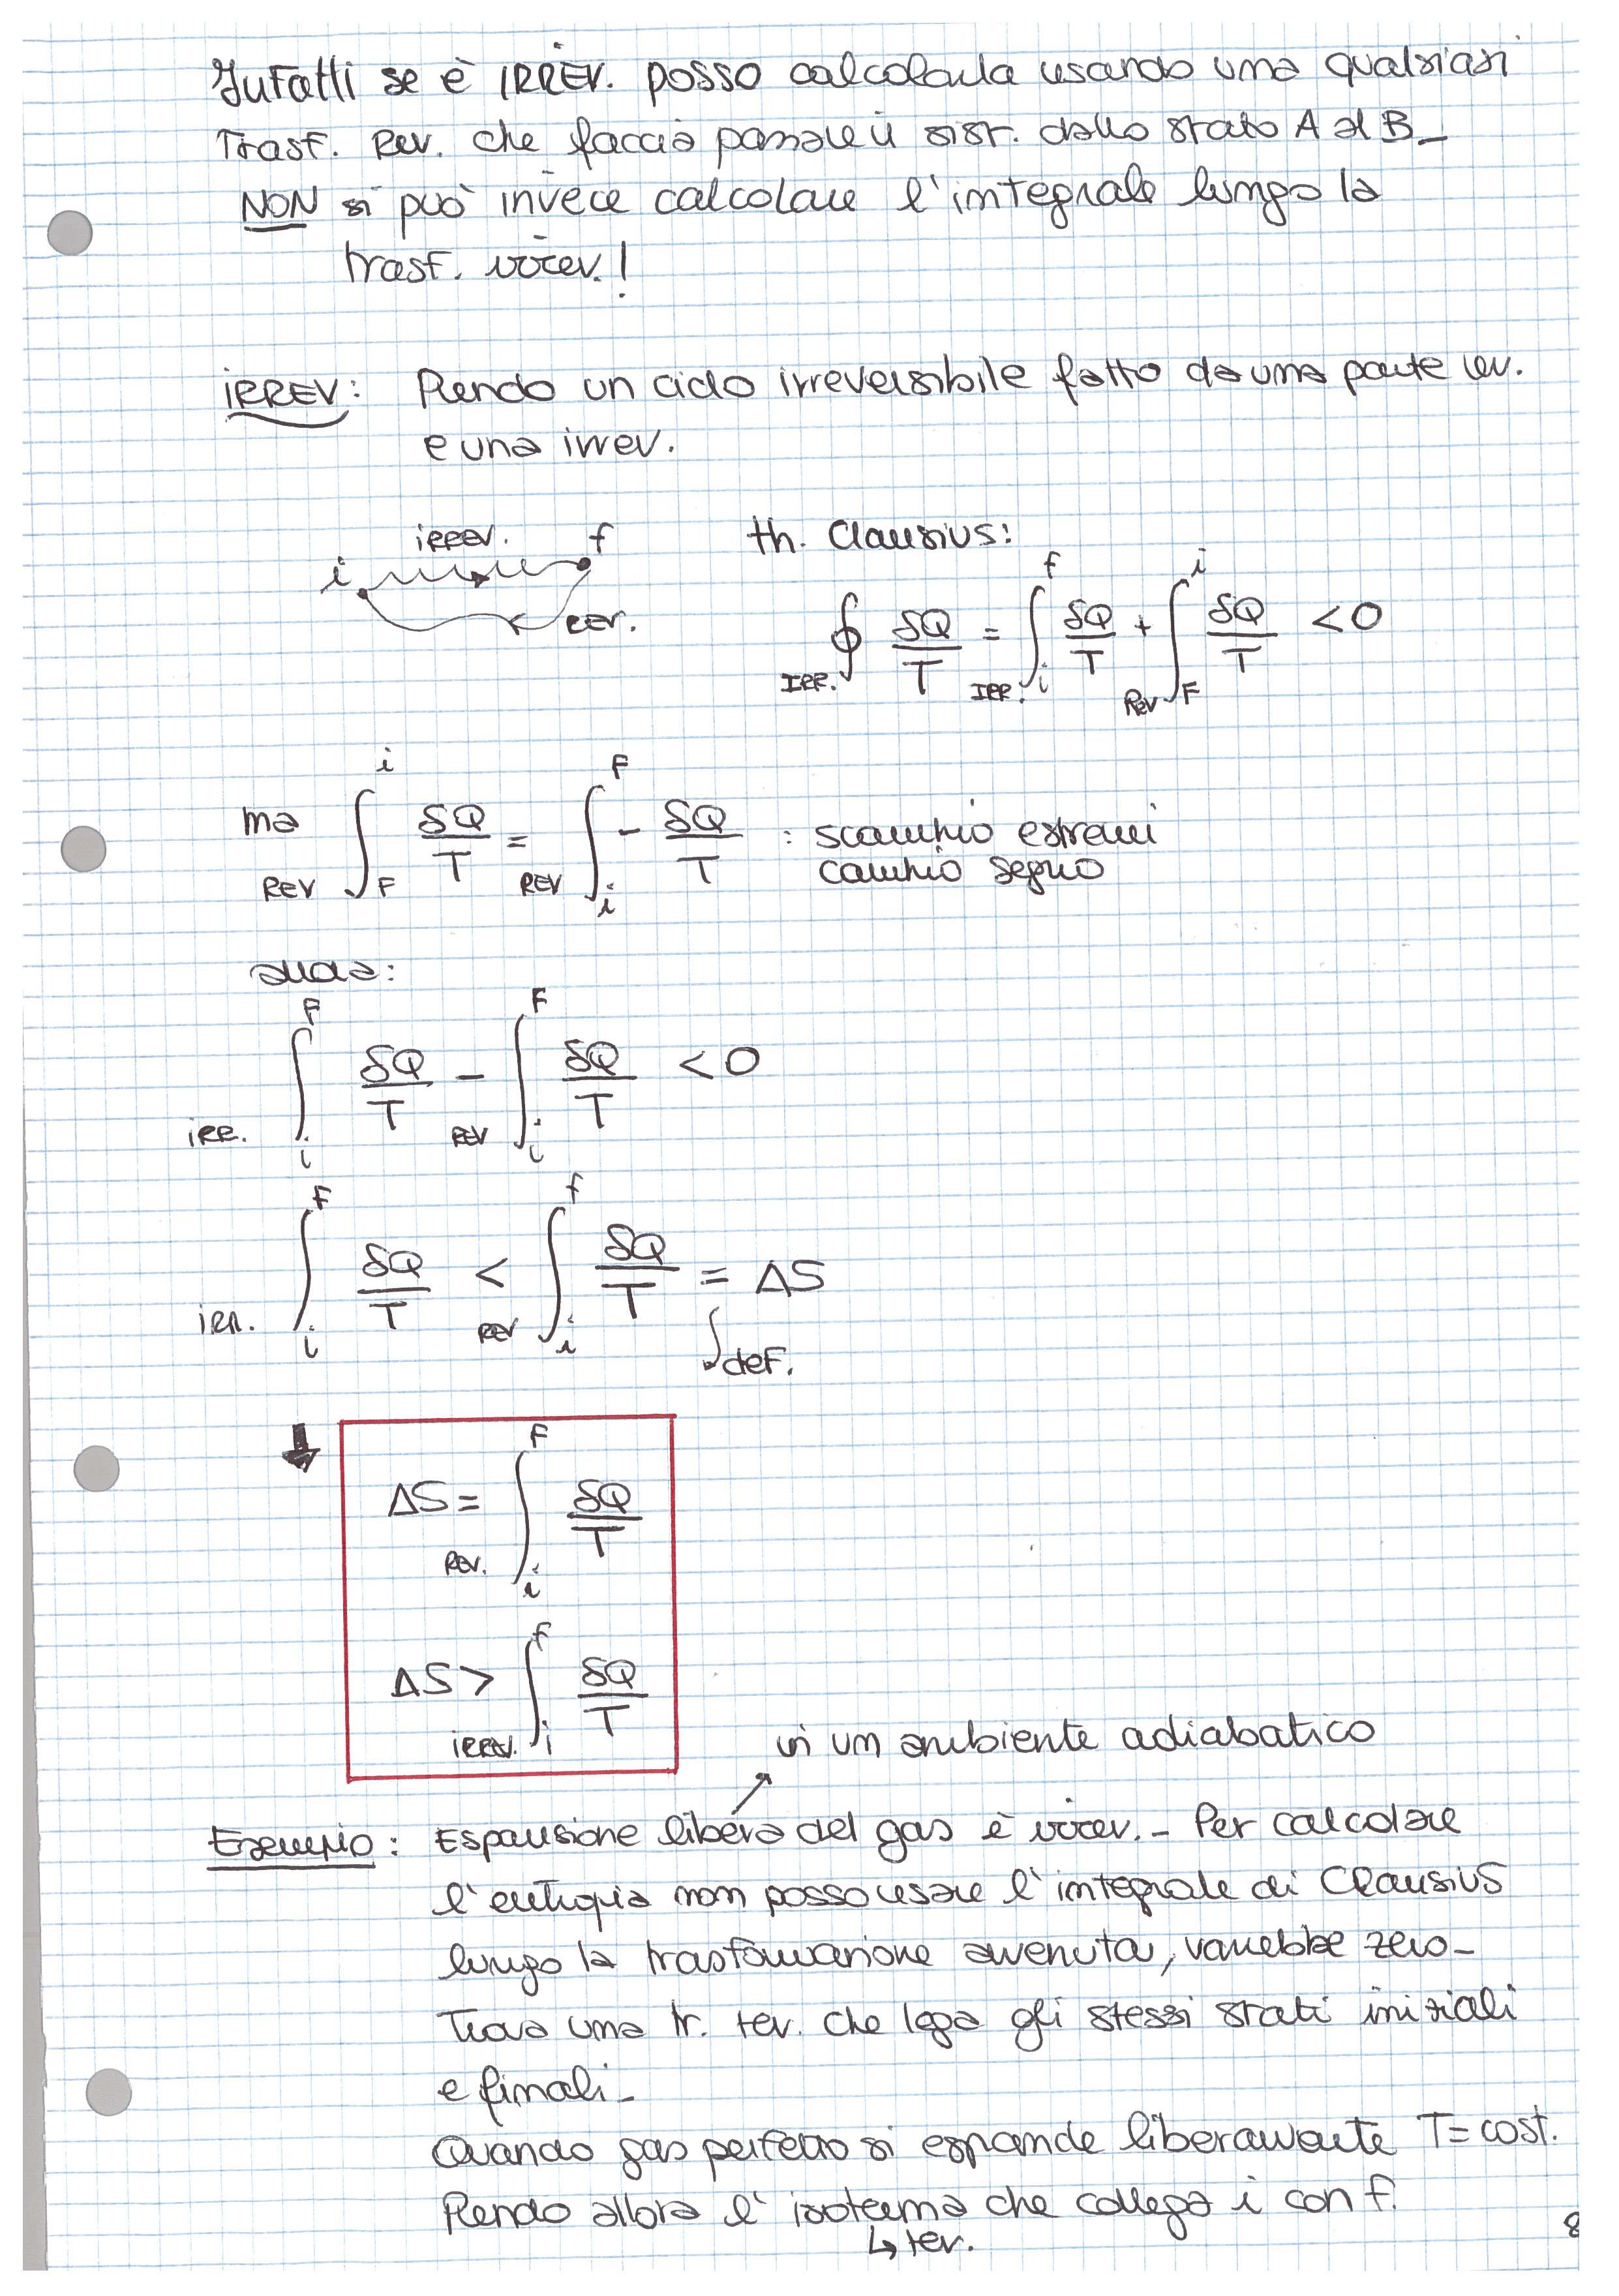 Infatti se è IRREV. posso calcolarla usando una qualsiasi
Trasf. Rev. che faccia passare il sist. dallo stato A al B_
NON si può invece calcolare l'integrale lungo la
trasf. irrev.!
IRREV: Prendo un ciclo irreversibile fatto da una parte rev.
e una irrev.
irrev. f
i
rev.
th. Clausius:
IRR. ∮ δQ/T = IRR. ∫_i^f δQ/T + Rev ∫_F^i δQ/T < 0
ma REV ∫_F^i δQ/T = REV ∫_i^F - δQ/T : scambio estremi
cambio segno
allora:
irr. ∫_i^F δQ/T - REV ∫_i^F δQ/T < 0
irr. ∫_i^F δQ/T < REV ∫_i^f δQ/T = ΔS
def.
ΔS = Rev. ∫_i^F δQ/T
ΔS > irrev. ∫_i^f δQ/T
in un ambiente adiabatico
Esempio: Espansione libera del gas è irrev. - Per calcolare
l'entropia non posso usare l'integrale di Clausius
lungo la trasformazione avvenuta, varrebbe zero_
Trovo una tr. rev. che lega gli stessi stati iniziali
e finali_
Quando gas perfetto si espande liberamente T = cost.
Prendo allora l'isoterma che collega i con f.
↳ rev.
8